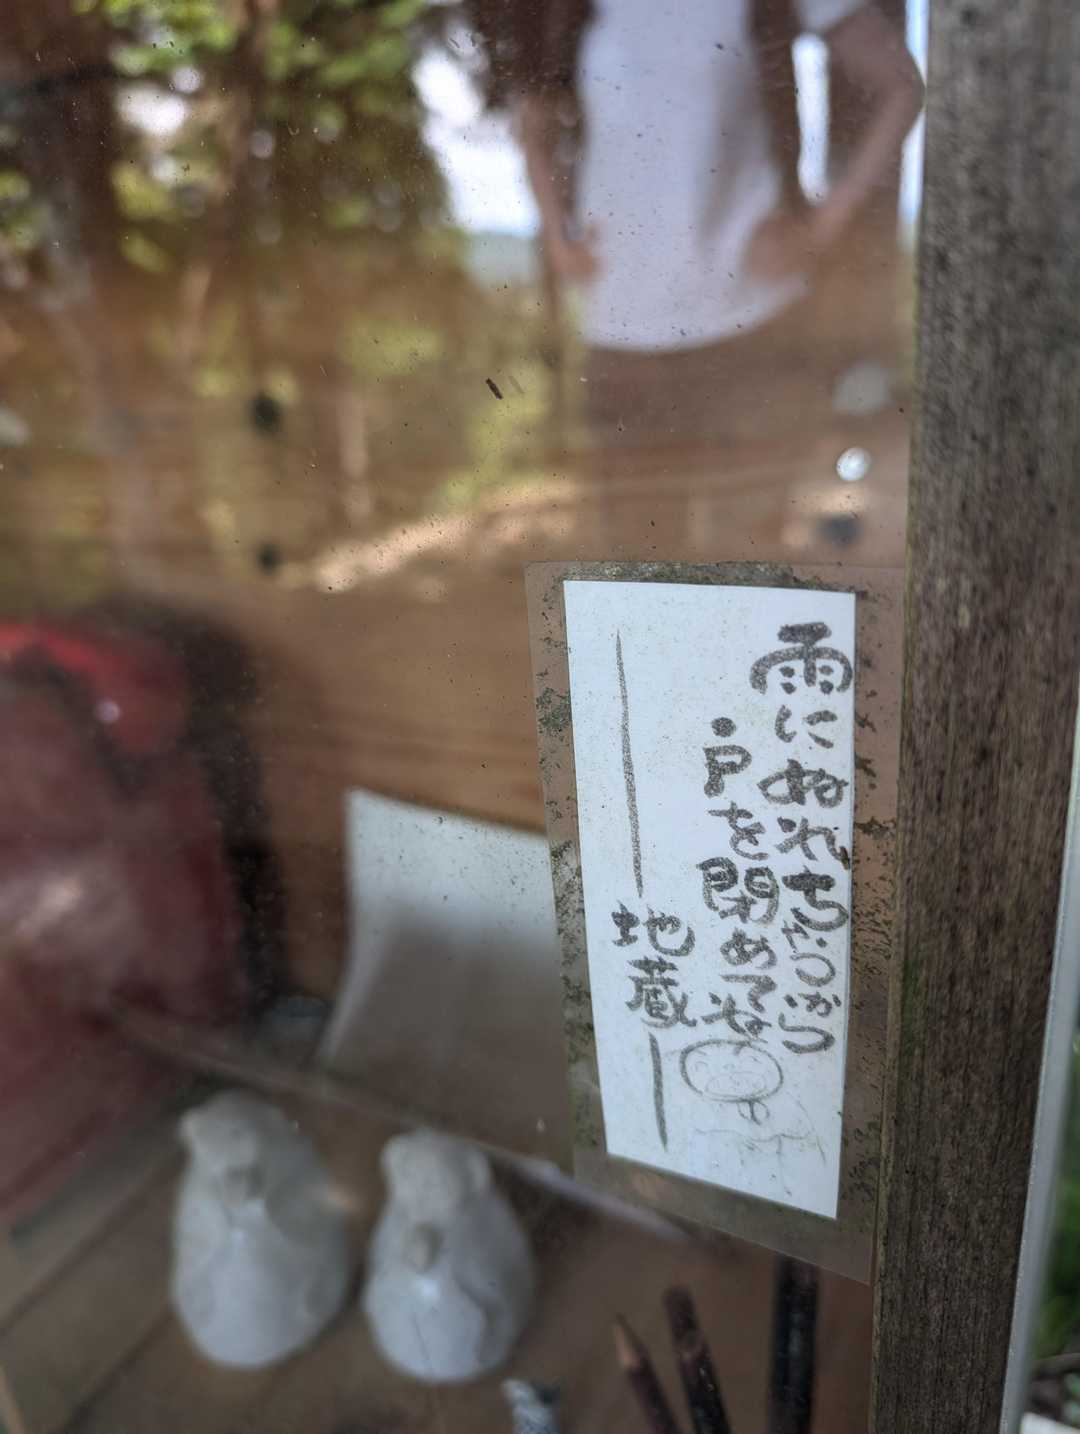 雨にぬれちゃうから
戸を閉めてね
― 地蔵 ―